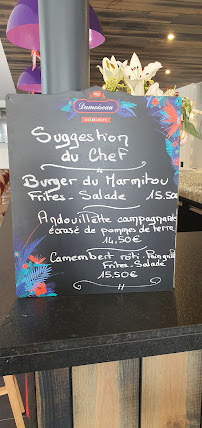 Damoiseau
Suggestion
du Chef
Burger du Marmitou
Frites - Salade 15.50
Andouillette campagnarde
écrasé de pommes de terre
14,50€
Camembert rôti - Pain grillé
Frites - Salade
15.50€